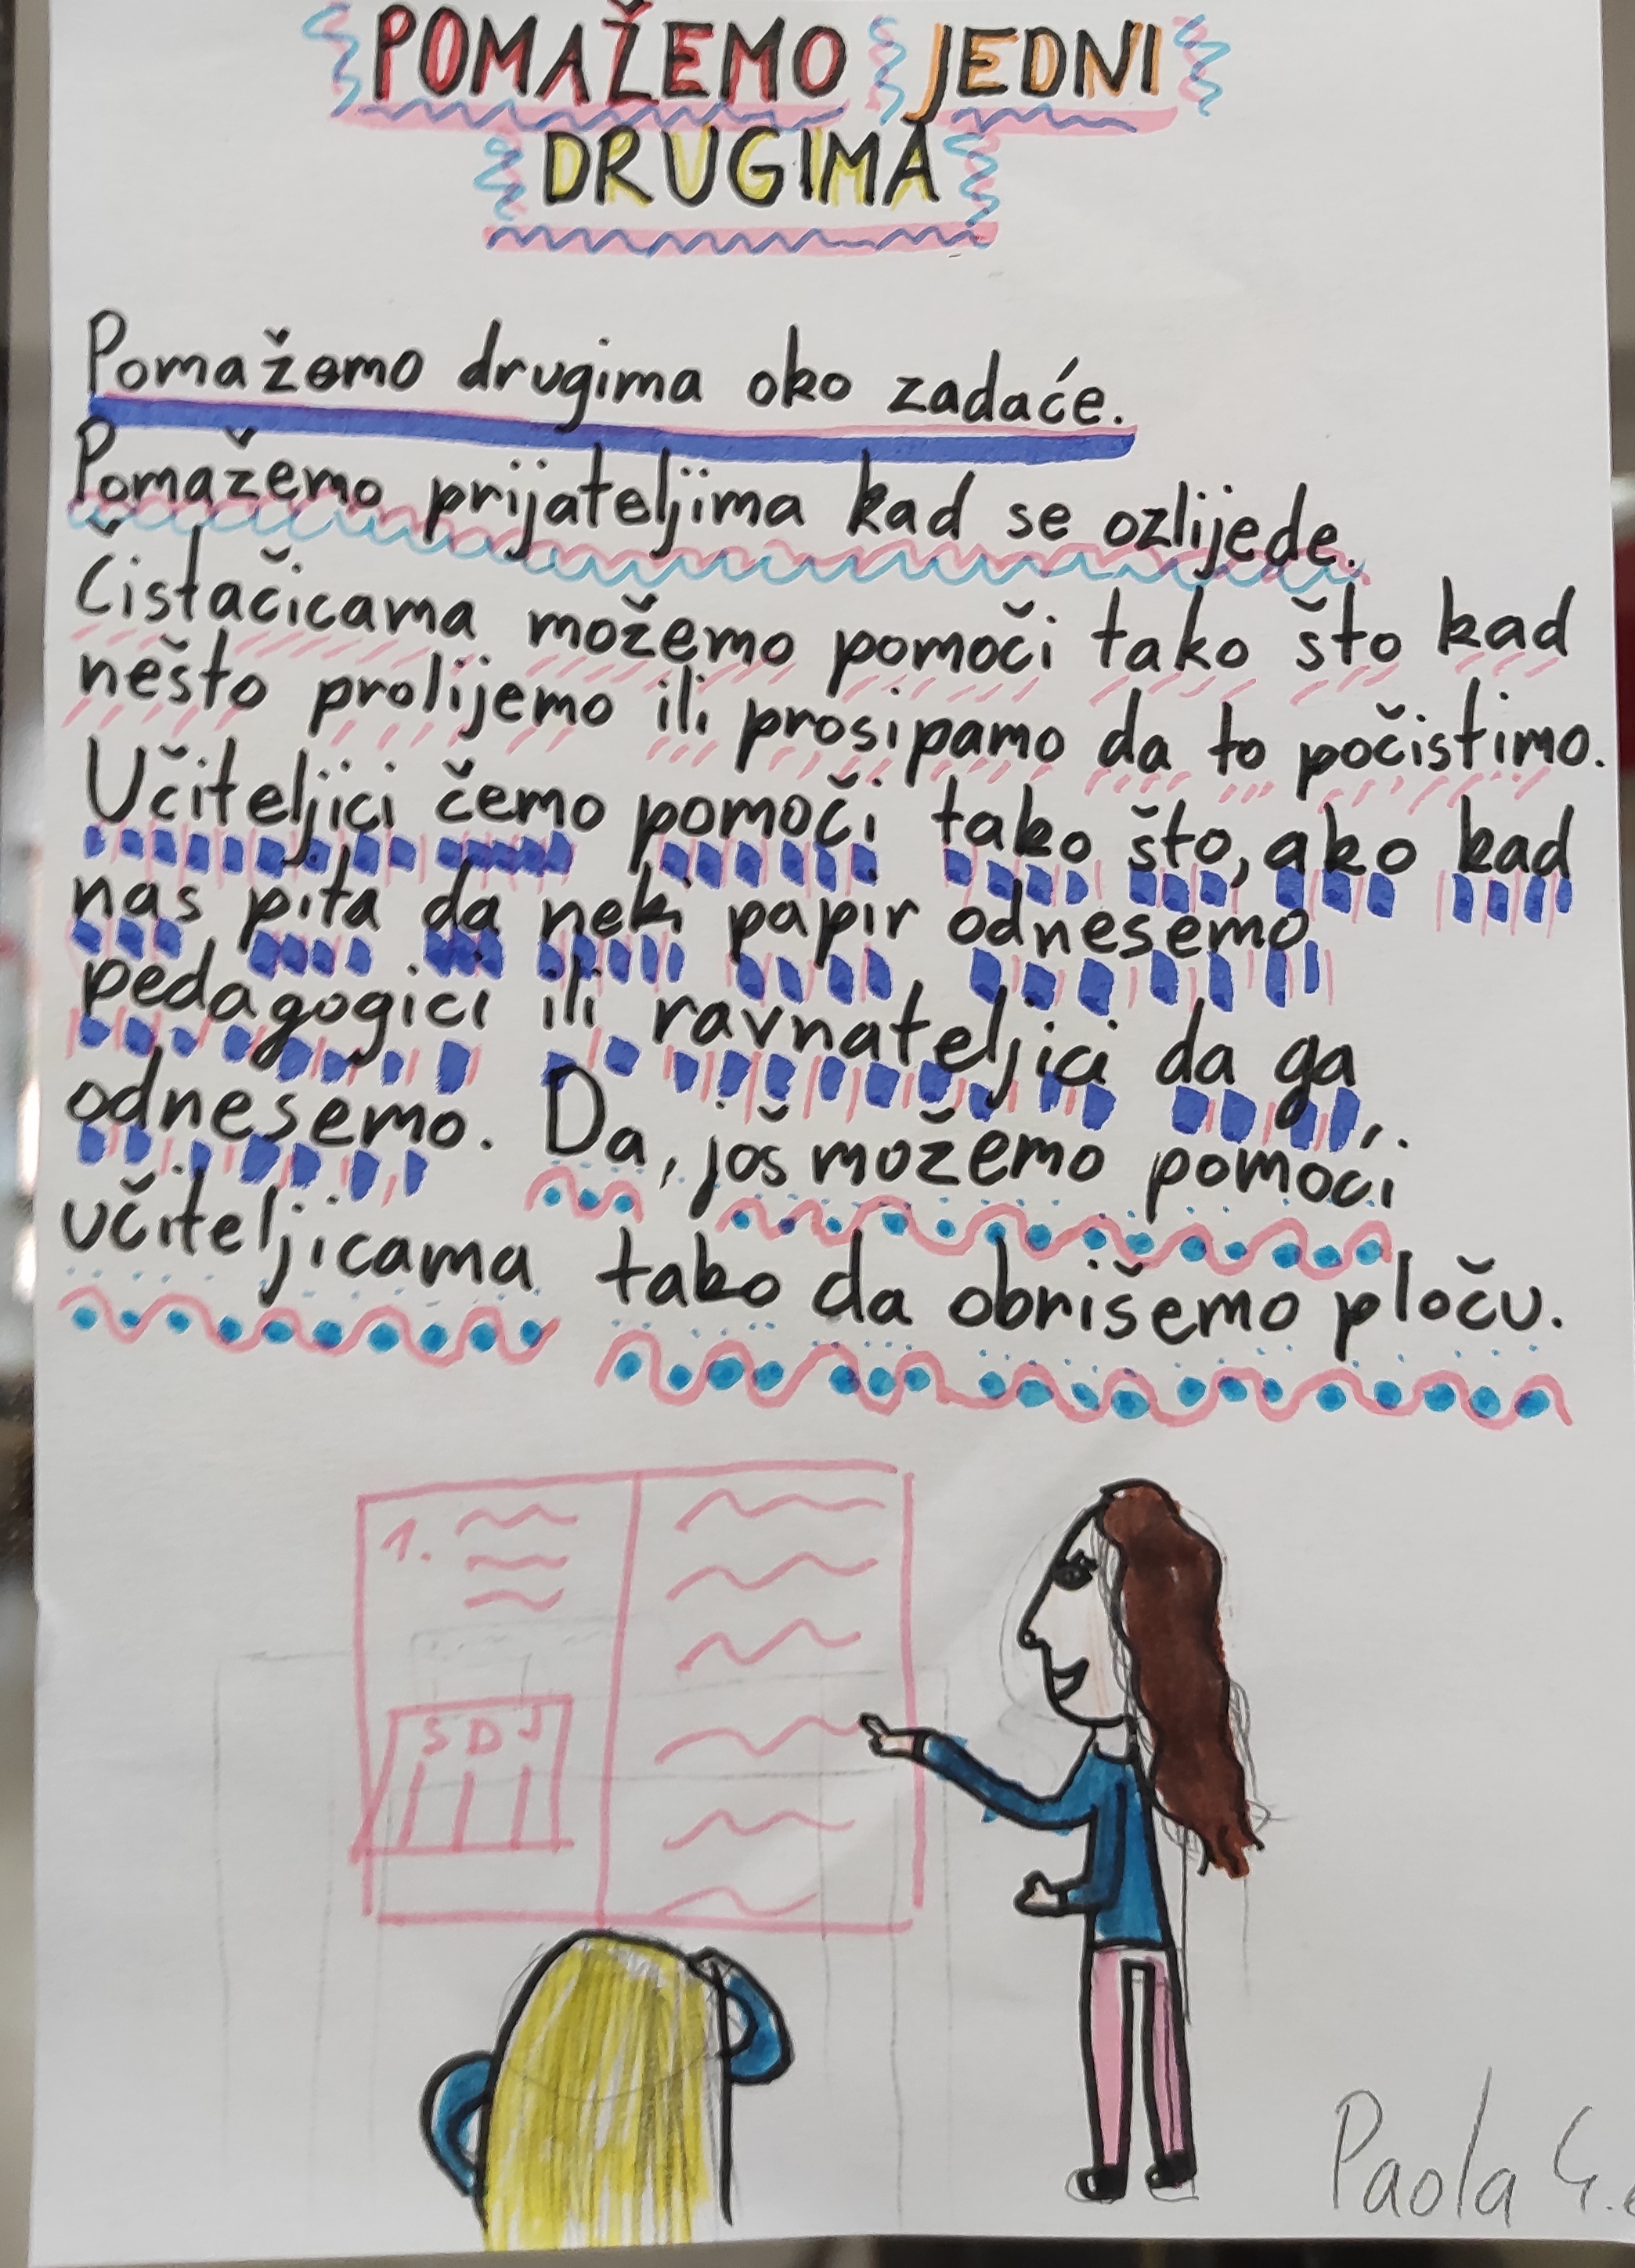 POMAŽEMO JEDNI
DRUGIMA
Pomažemo drugima oko zadaće.
Pomažemo prijateljima kad se ozlijede.
Čistačicama možemo pomoči tako što kad
nešto prolijemo ili prosipamo da to počistimo.
Učiteljici čemo pomoči tako što, ako kad
nas pita da neki papir odnesemo
pedagogici ili ravnateljici da ga
odnesemo. Da, još možemo pomoći
učiteljicama tako da obrišemo ploču.
1.
S D J
Paola 4.